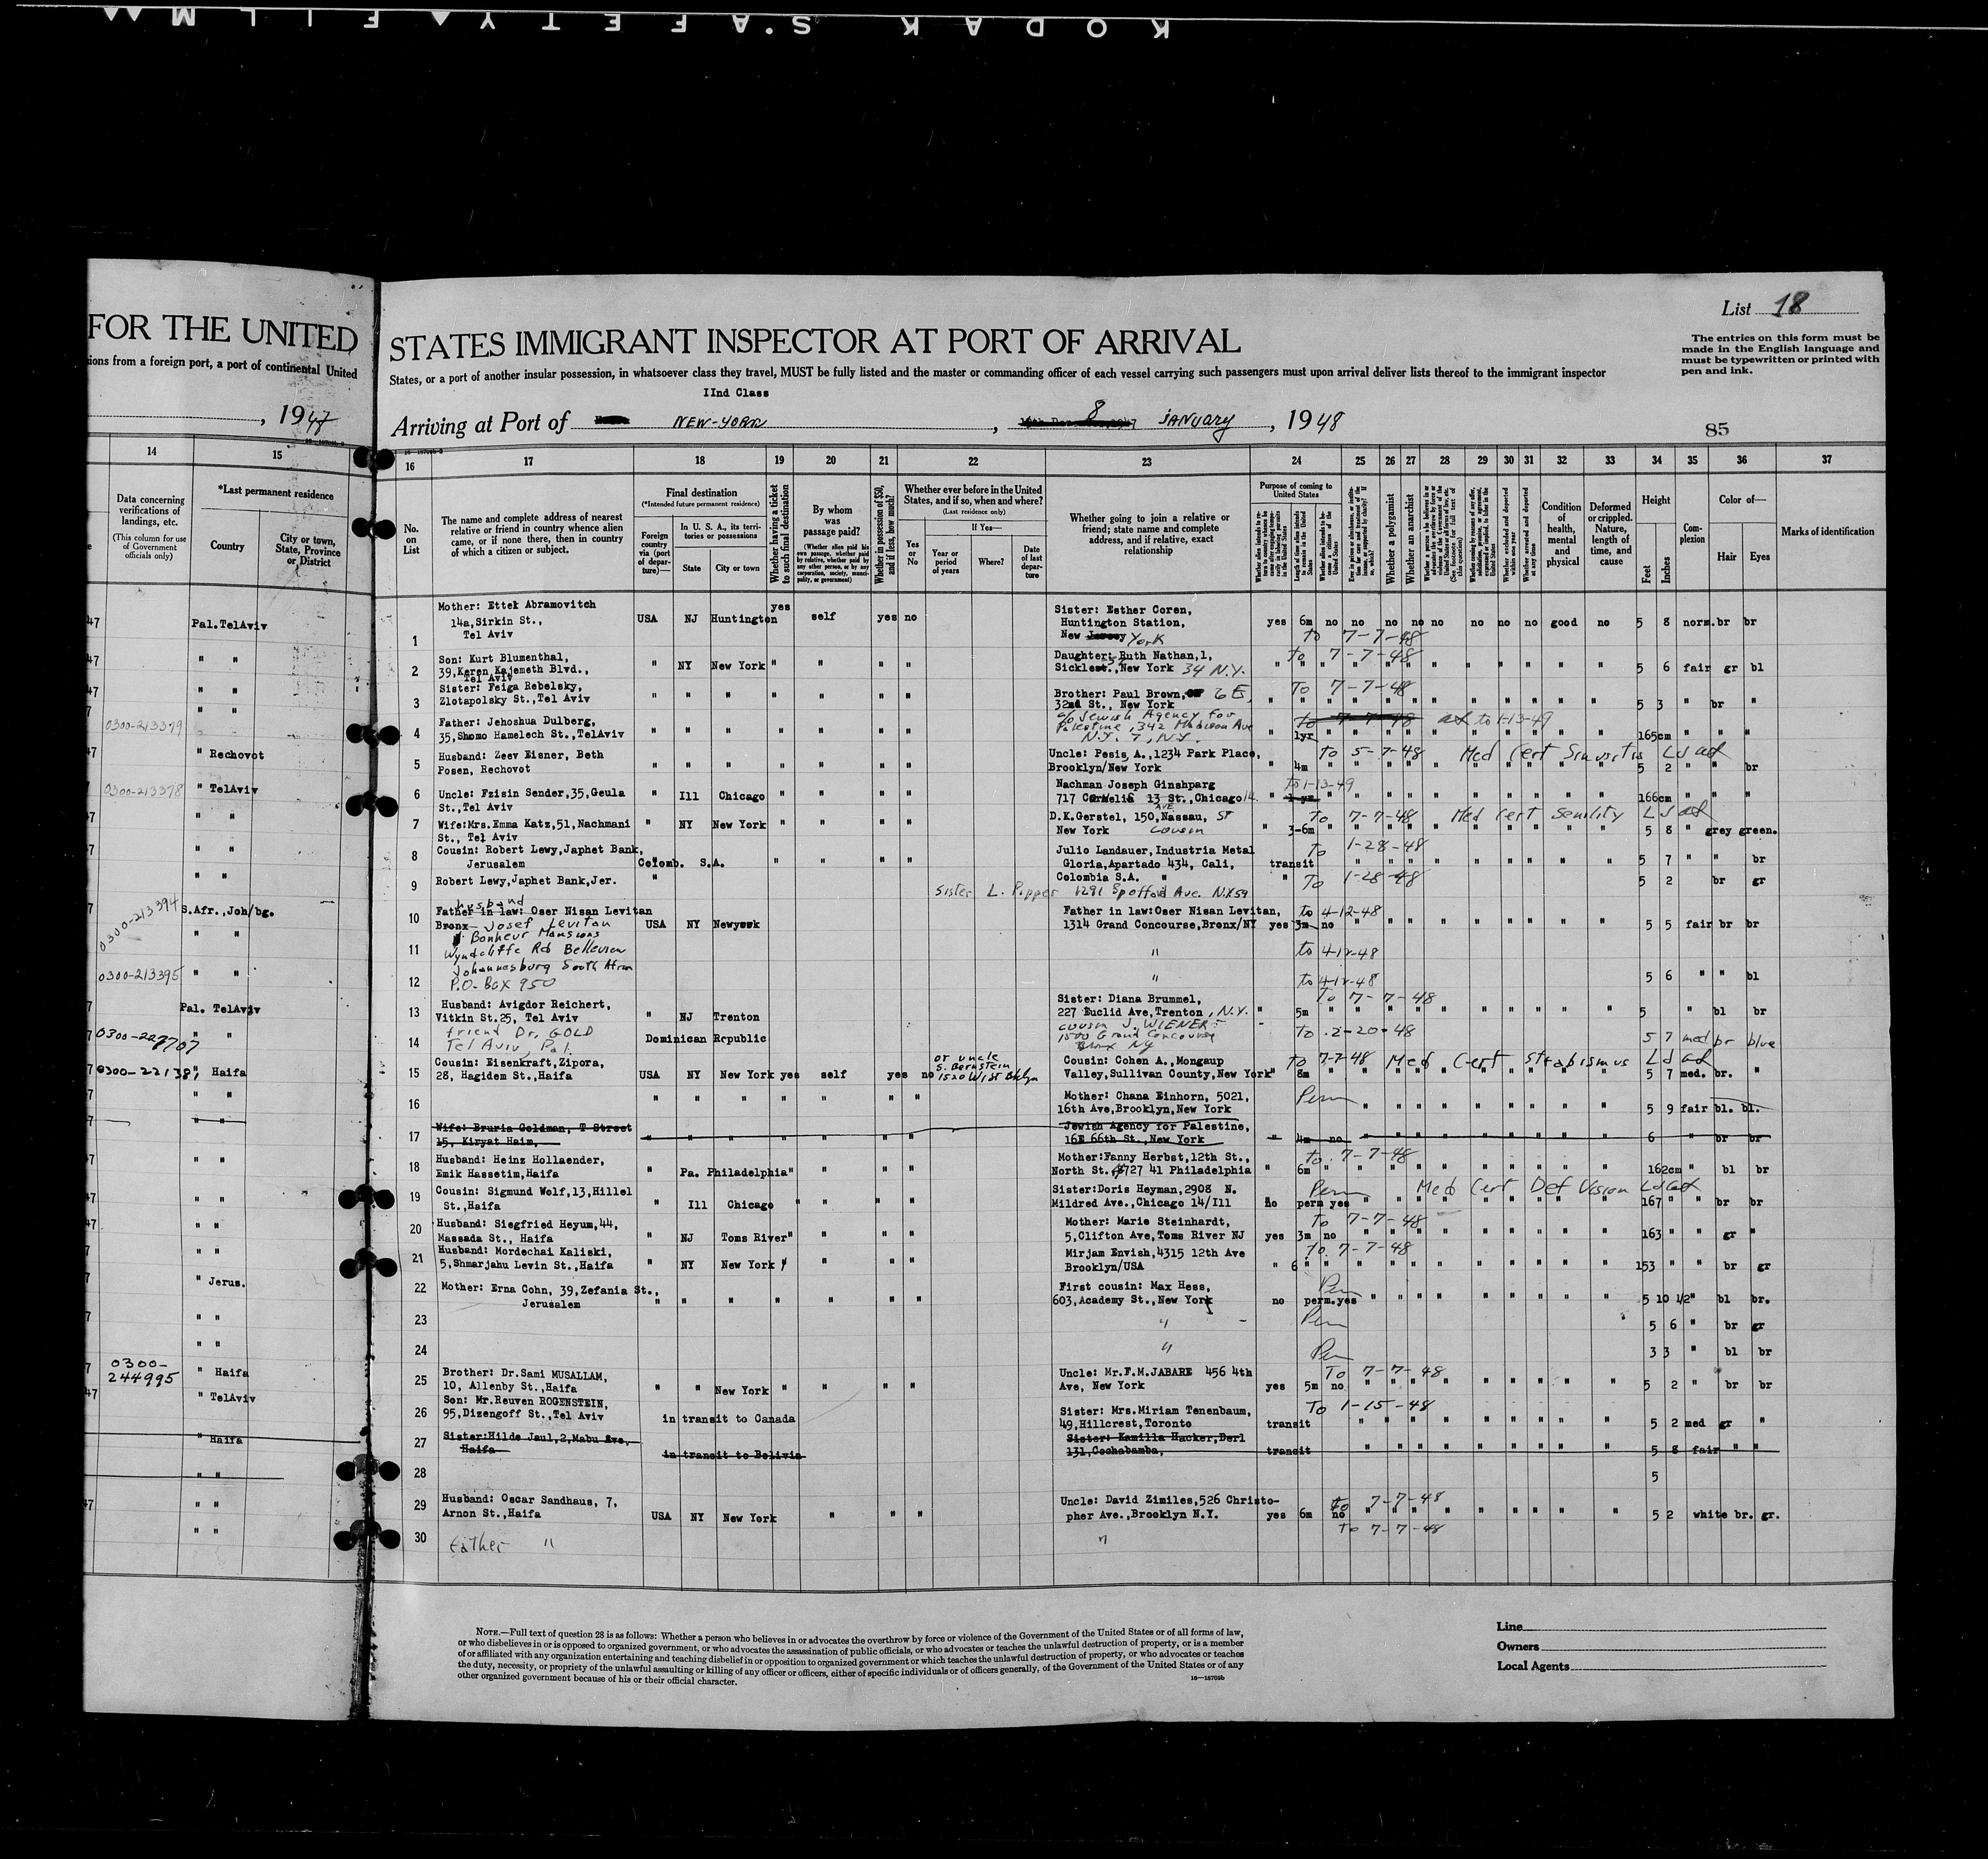 KODAK SAFETY FILM
List 18
FOR THE UNITED STATES IMMIGRANT INSPECTOR AT PORT OF ARRIVAL
The entries on this form must be made in the English language and must be typewritten or printed with pen and ink.
sions from a foreign port, a port of continental United States, or a port of another insular possession, in whatsoever class they travel, MUST be fully listed and the master or commanding officer of each vessel carrying such passengers must upon arrival deliver lists thereof to the immigrant inspector
IInd Class
, 1947
Arriving at Port of NEW-YORK, 8 JANUARY, 1948
85
14 15 16 17 18 19 20 21 22 23 24 25 26 27 28 29 30 31 32 33 34 35 36 37
Data concerning verifications of landings, etc.
(This column for use of Government officials only)
*Last permanent residence
Country
City or town, State, Province or District
No. on List
The name and complete address of nearest relative or friend in country whence alien came, or if none there, then in country of which a citizen or subject.
Final destination
(*Intended future permanent residence)
Foreign country via (port of departure)—
In U. S. A., its territories or possessions
State
City or town
Whether having a ticket to such final destination
By whom was passage paid?
(Whether alien paid his own passage, whether paid by relative, whether paid by any other person, or by any corporation, society, municipality, or government)
Whether in possession of $50, and if less, how much?
Whether ever before in the United States, and if so, when and where?
(Last residence only)
Yes or No
If Yes—
Year or period of years
Where?
Date of last departure
Whether going to join a relative or friend; state name and complete address, and if relative, exact relationship
Purpose of coming to United States
Length of time alien intends to remain in the United States
Whether a polygamist
Whether an anarchist
Condition of health, mental and physical
Deformed or crippled. Nature, length of time, and cause
Height
Feet
Inches
Complexion
Color of—
Hair
Eyes
Marks of identification
47 Pal. TelAviv 1 Mother: Ettel Abramovitch USA NJ Huntington yes self yes no Sister: Esther Coren, yes 6m no no no no no no no no good no 5 8 norm. br br
14a, Sirkin St., Huntington Station,
Tel Aviv New York to 7-7-48
47 " " 2 Son: Kurt Blumenthal, " NY New York " " " " Daughter: Ruth Nathan, 1, To 7-7-48 5 6 fair gr bl
39, Keren Kajemeth Blvd., New York 34 N.Y.
Tel Aviv
47 " " 3 Sister: Feiga Rebelsky, " " " " " " " Brother: Paul Brown, 6 E To 7-7-48 5 3 " br "
Zlotapolsky St., Tel Aviv 32nd St., New York
0300-213379 " " 4 Father: Jehoshua Dulberg, " " " " " " " c/o Jewish Agency for to 7-7-48 to 1-13-49
35, Shomo Hamelech St., TelAviv Palestine, 342 Madison Ave 1yr 165cm " " "
N.Y. 7, N.Y.
47 " Rechovot 5 Husband: Zeev Eisner, Beth " " " " " " " Uncle: Pesis, A., 1234 Park Place, to 5-7-48 Med Cert Sinusitis
Posen, Rechovot Brooklyn/New York " 4m 5 2 " " br
0300-213378 " TelAviv 6 Uncle: Fzisin Sender, 35, Geula " Ill Chicago " " " " Nachman Joseph Ginshparg to 1-13-49
St., Tel Aviv 717 13 St., Chicago " 1 yr 166cm " " "
47 " " 7 Wife: Mrs. Emma Katz, 51, Nachmani " NY New York " " " " D.K. Gerstel, 150, Nassau, St To 7-7-48 Med Cert Senility
St., Tel Aviv New York cousin " 3-6m 5 8 " grey green.
47 " " 8 Cousin: Robert Lewy, Japhet Bank, Colomb. S.A. " " " " Julio Landauer, Industria Metal To 1-28-48
Jerusalem Gloria, Apartado 434, Cali, transit 5 7 " " br
" " 9 Robert Lewy, Japhet Bank, Jer. " Colombia S.A. " " To 1-28-48 5 2 br gr
Sister L. Popper 1291 Spofford Ave. NY59
0300-213394 S.Afr., Joh/bg. 10 husband
Father in law: Oser Nisan Levitan USA NY Newyork Father in law: Oser Nisan Levitan, to 4-12-48
Bronx Josef Levitan 1314 Grand Concourse, Bronx/NY yes 3m no 5 5 fair br br
Bonheur Mansions
" " 11 Wyndcliffe Rd Bellevue " to 4-12-48
Johannesburg South Africa
0300-213395 " " 12 P.O. Box 950 " to 4-12-48 5 6 " " bl
Pal. TelAviv 13 Husband: Avigdor Reichert, " NJ Trenton Sister: Diana Brummel, To 7-7-48
Vitkin St. 25, Tel Aviv 227 Euclid Ave, Trenton, N.Y. " 5m 5 " bl br
0300-227707 " " 14 friend Dr. GOLD Dominican Republic cousin J. WIENER To 2-20-48
Tel Aviv, Pal. 1500 Grand Concourse 5 7 med br blue
Bronx NY
0300-22138 " Haifa 15 Cousin: Eisenkraft, Zipora, USA NY New York yes self yes no or uncle Cousin: Cohen A., Mongaup to 7-7-48 Med Cert Strabismus
28, Hagidem St., Haifa S. Bernstein Valley, Sullivan County, New York " 8m 5 7 med. br. "
1520 W 1 St Bklyn
" " 16 " " " " " " " Mother: Chana Einhorn, 5021, Perm
16th Ave, Brooklyn, New York 5 9 fair bl. bl.
" " 17 Wife: Bruria Goldman, T Street " " " " " " " Jewish Agency for Palestine,
15, Kiryat Haim, 16E 66th St., New York " 4m no 6 " br br
47 " " 18 Husband: Heinz Hollaender, " Pa. Philadelphia " " " " Mother: Fanny Herbst, 12th St., to 7-7-48
Emik Hassetim, Haifa North St. 727 41 Philadelphia " 6m 162cm " bl br
47 " " 19 Cousin: Sigmund Wolf, 13, Hillel " Ill Chicago " " " " Sister: Doris Heyman, 2908 N. Perm Med Cert Def Vision
St., Haifa Mildred Ave., Chicago 14/Ill no perm yes 167 " " br br
47 " " 20 Husband: Siegfried Heyum, 44, " NJ Toms River " " " " Mother: Marie Steinhardt, To 7-7-48
Massada St., Haifa 5, Clifton Ave, Toms River NJ yes 3m no 163 " " gr "
" " 21 Husband: Mordechai Kaliski, " NY New York " " " Mirjam Envish, 4315 12th Ave to 7-7-48
5, Shmarjahu Levin St., Haifa Brooklyn/USA " 6 153 " " br gr
" Jerus. 22 Mother: Erna Cohn, 39, Zefania St., " " " " " " " First cousin: Max Hess, Perm
Jerusalem 603, Academy St., New York no perm. yes 5 10 1/2 " bl br.
" " 23 " Perm 5 6 " br gr
" " 24 " Perm 3 3 " bl br
0300-244995 " Haifa 25 Brother: Dr. Sami MUSALLAM, " " New York " " " " Uncle: Mr. F.M. JABARE 456 4th To 7-7-48
10, Allenby St., Haifa Ave, New York yes 5m no 5 2 " br br
47 " TelAviv 26 Son: Mr. Reuven ROGENSTEIN, in transit to Canada Sister: Mrs. Miriam Tenenbaum, To 1-15-48
95, Dizengoff St., Tel Aviv 49, Hillcrest, Toronto transit 5 2 med gr "
" Haifa 27 Sister: Hilde Jaul, 2, Mabu Ave, in transit to Bolivia Sister: Kamilla Hacker, Derl
Haifa 131, Cochabamba, transit 5 8 fair " "
" " 28 5
47 " " 29 Husband: Oscar Sandhaus, 7, USA NY New York " " " Uncle: David Zimiles, 526 Christo- to 7-7-48
Arnon St., Haifa pher Ave., Brooklyn N.Y. yes 6m no 5 2 white br. gr.
" " 30 Father " " To 7-7-48
NOTE.—Full text of question 28 is as follows: Whether a person who believes in or advocates the overthrow by force or violence of the Government of the United States or of all forms of law,
or who disbelieves in or is opposed to organized government, or who advocates the assassination of public officials, or who advocates or teaches the unlawful destruction of property, or is a member
of or affiliated with any organization entertaining and teaching disbelief in or opposition to organized government or which teaches the unlawful destruction of property, or who advocates or teaches
the duty, necessity, or propriety of the unlawful assaulting or killing of any officer or officers, either of specific individuals or of officers generally, of the Government of the United States or of any
other organized government because of his or their official character.
16—15705b
Line
Owners
Local Agents